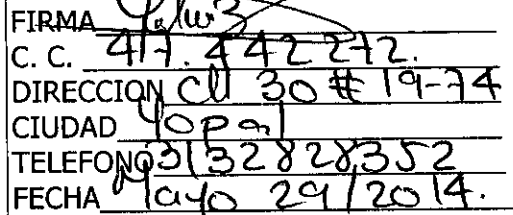 FIRMA
C. C. 47. 442 272.
DIRECCION Cll 30 # 19-74
CIUDAD Yopal
TELEFONO 3132828352
FECHA Mayo 29/2014.